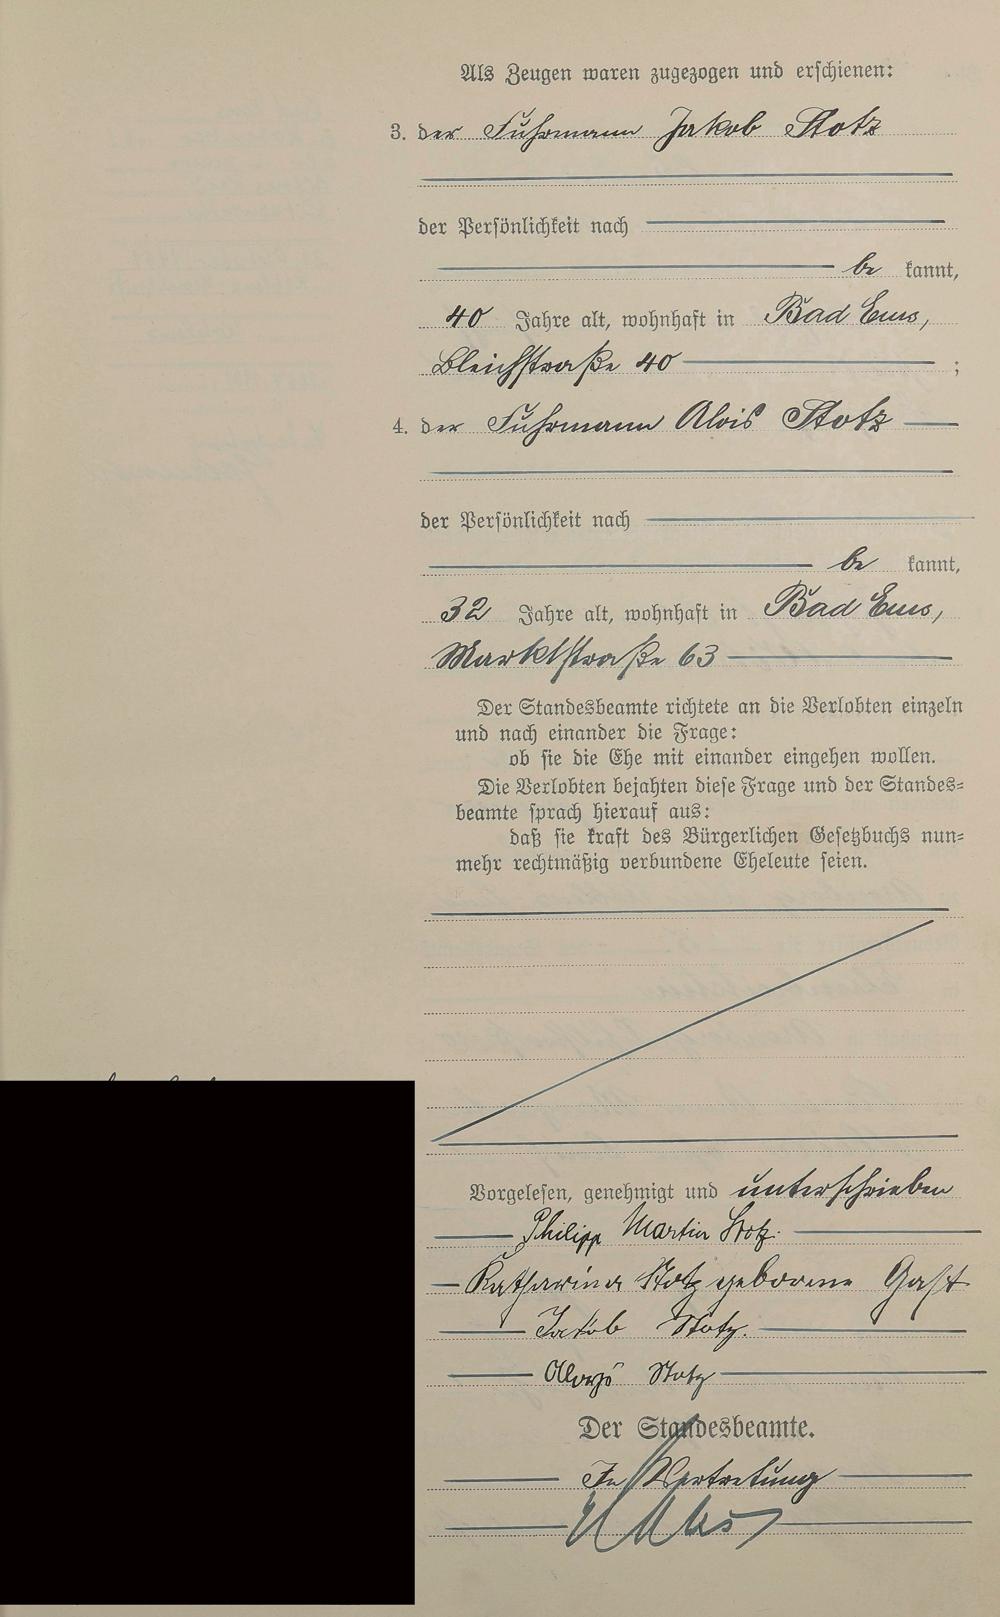 Als Zeugen waren zugezogen und erschienen:
3. der Fuhrmann Jakob Stotz
der Persönlichkeit nach
be kannt,
40 Jahre alt, wohnhaft in Bad Ems,
Bleichstraße 40 ;
4. der Fuhrmann Alois Stotz
der Persönlichkeit nach
be kannt,
32 Jahre alt, wohnhaft in Bad Ems,
Marktstraße 63
Der Standesbeamte richtete an die Verlobten einzeln
und nach einander die Frage:
ob sie die Ehe mit einander eingehen wollen.
Die Verlobten bejahten diese Frage und der Standes=
beamte sprach hierauf aus:
daß sie kraft des Bürgerlichen Gesetzbuchs nun=
mehr rechtmäßig verbundene Eheleute seien.
Vorgelesen, genehmigt und unterschrieben
Philipp Martin Stotz.
Katharina Stotz geborene Gast
Jakob Stotz.
Stotz
Der Standesbeamte.
In Vertretung